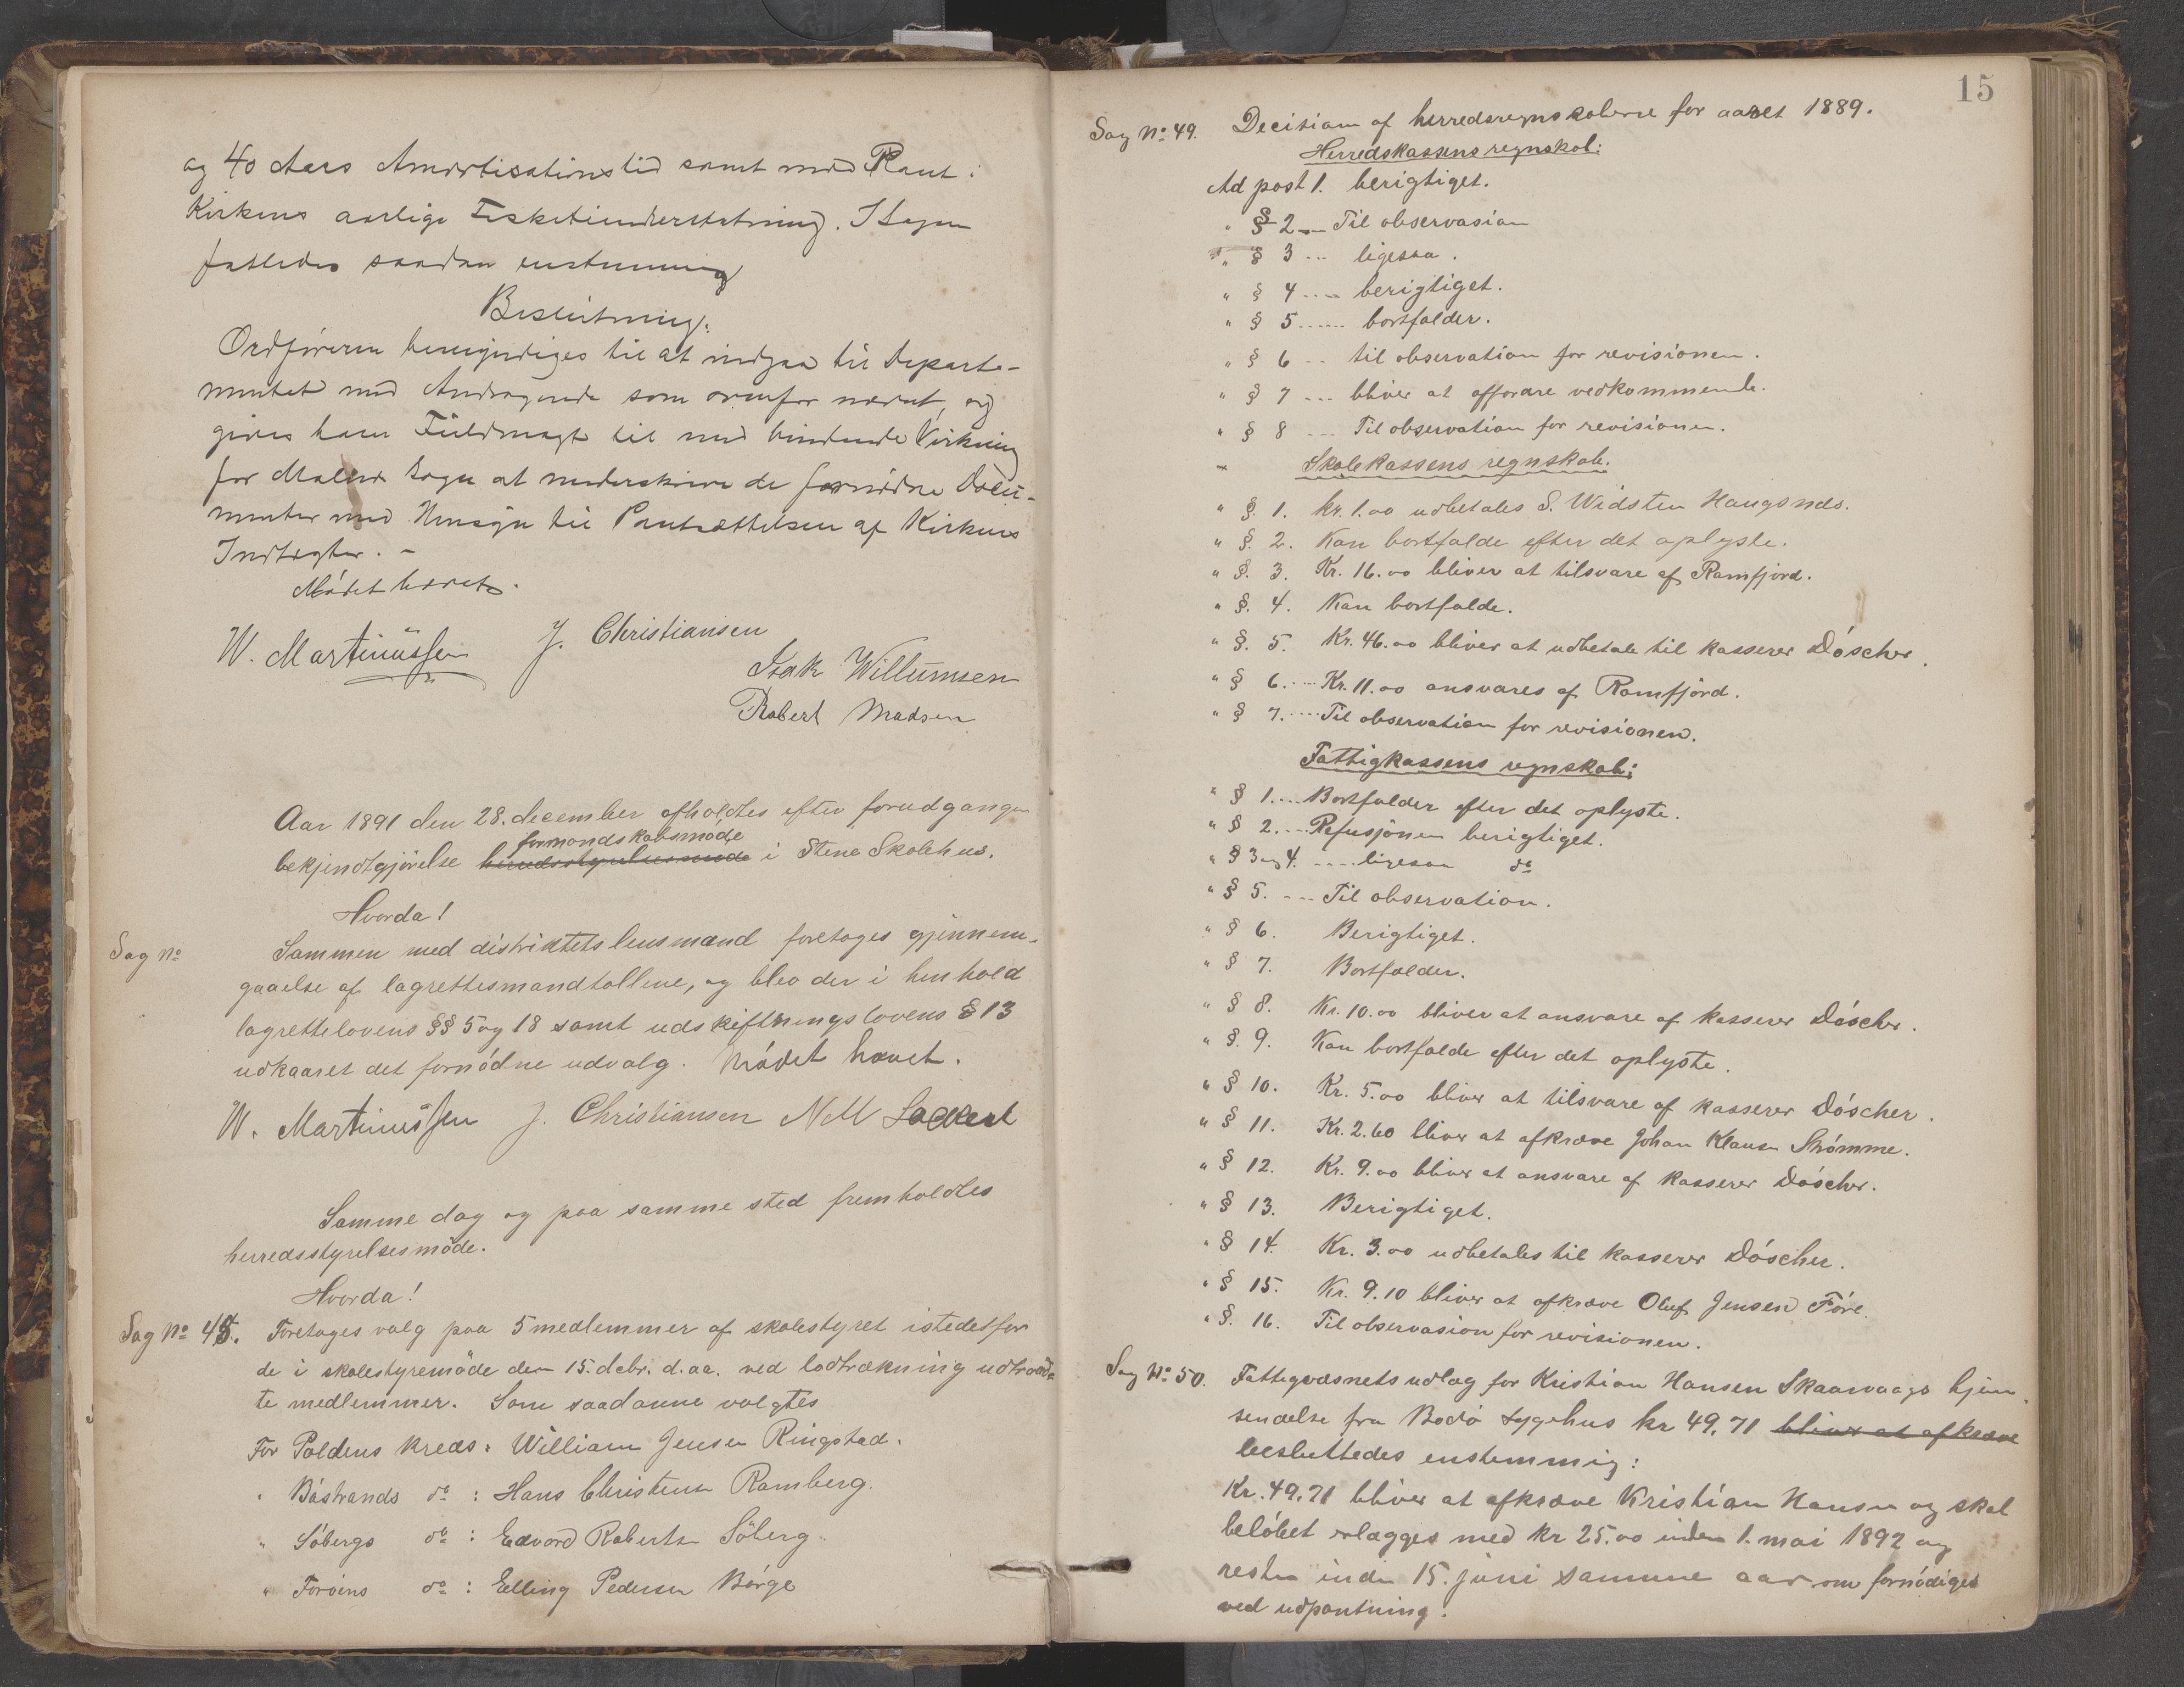 og 40 Aars Amortisationstid samt med Pant i
Kirkens aarlige Fisketiendeerstatning. I Sagen
fattedes saadan enstemmig
Beslutning:
Ordføreren bemyndiges til at indgaa til Departe-
mentet med Andragende som ovenfor nævnt, og
gives ham Fuldmagt til med bindende Virkning
for Malnes Sogn at underskrive de fornødne Docu-
menter med Hensyn til Pantsættelsen af Kirkens
Indtægter. -
Mødet hævet.
W. Martinussen J. Christiansen
Isak Willumsen
Robert Madsen
Aar 1891 den 28. december afholdtes efter forudgangen
formandskabsmøde
bekjendtgjørelse herredsstyrelsesmøde i Stene Skolehus.
Hvorda!
Sag No Sammen med distriktets lensmand foretoges gjennem-
gaaelse af lagrettesmandtallene, og blev der i henhold
lagrettelovens §§ 5 og 18 samt udskiftningslovens § 13
udkaaret det fornødne udvalg. Mødet hævet.
W. Martinussen J. Christiansen N M Lockert
Samme dag og paa samme sted fremholdtes
herredsstyrelsesmøde.
Hvorda!
Sag No 48. Foretoges valg paa 5 medlemmer af skolestyret istedetfor
de i skolestyremøde den 15. debr. d.aa. ved lodtrækning udtraad-
te medlemmer. Som saadanne valgtes
For Poldens kreds: William Jensen Ringstad.
" Båstrands do : Hans Christensen Ramberg.
" Søbergs do : Edvard Robertsen Søberg.
" Forøens do : Elling Pedersen Børge
15
Sag No 49. Decision af herredsregnskaberne for aaret 1889.
Herredskassens regnskab:
Ad post 1. berigtiget.
" § 2 -- Til observasion
" § 3 --- ligesaa.
" § 4 ---- berigtiget.
" § 5 ------ bortfalder.
" § 6 -- til observation for revisionen.
" § 7 --- bliver at affordre vedkommende.
" § 8 --- Til observation for revisionen.
Skolekassens regnskab.
" §. 1. kr. 1.00 udbetales S. Widsten Haugsnds.
" §. 2. Kan bortfalde efter det oplyste.
" §. 3. Kr. 16.00 bliver at tilsvare af Ramfjord.
" §. 4. Kan bortfalde.
" §. 5. Kr. 46.00 bliver at udbetale til kasserer Døscher.
" § 6. --- Kr. 11.00 ansvares af Ramfjord.
" § 7. ---- Til observation for revisionen.
Fattigkassens regnskab:
" § 1. --- Bortfalder efter det oplyste.
" § 2. --- Refusjonen berigtiget.
" § 3 og 4. ---- ligesaa do
" § 5. --- Til observation.
" § 6. Berigtiget.
" § 7. Bortfalder.
" § 8. Kr. 10.00 bliver at ansvare af kasserer Døscher.
" §. 9. Kan bortfalde efter det oplyste.
" § 10. Kr. 5.00 bliver at tilsvare af kasserer Døscher.
" § 11. Kr. 2.60 bliver at afkræve Johan Klausen Strømme.
" § 12. Kr. 9.00 bliver at ansvare af kasserer Døscher.
" § 13. Berigtiget.
" § 14. Kr. 3.00 udbetales til kasserer Døscher.
" § 15. Kr. 9.10 bliver at afkræve Oluf Jensen Føre.
" §. 16. Til observasion for revisionen.
Sag No 50. Fattigvæsnets udlæg for Kristian Hansen Skaarvaags hjem-
sendelse fra Bodø sygehus kr 49.71 bliver at afkræve
besluttedes enstemmig:
Kr. 49.71 bliver at afkræve Kristian Hansen og skal
beløbet erlægges med kr 25.00 inden 1. mai 1892 og
resten inden 15. juni samme aar om fornødiges
ved udpantning.